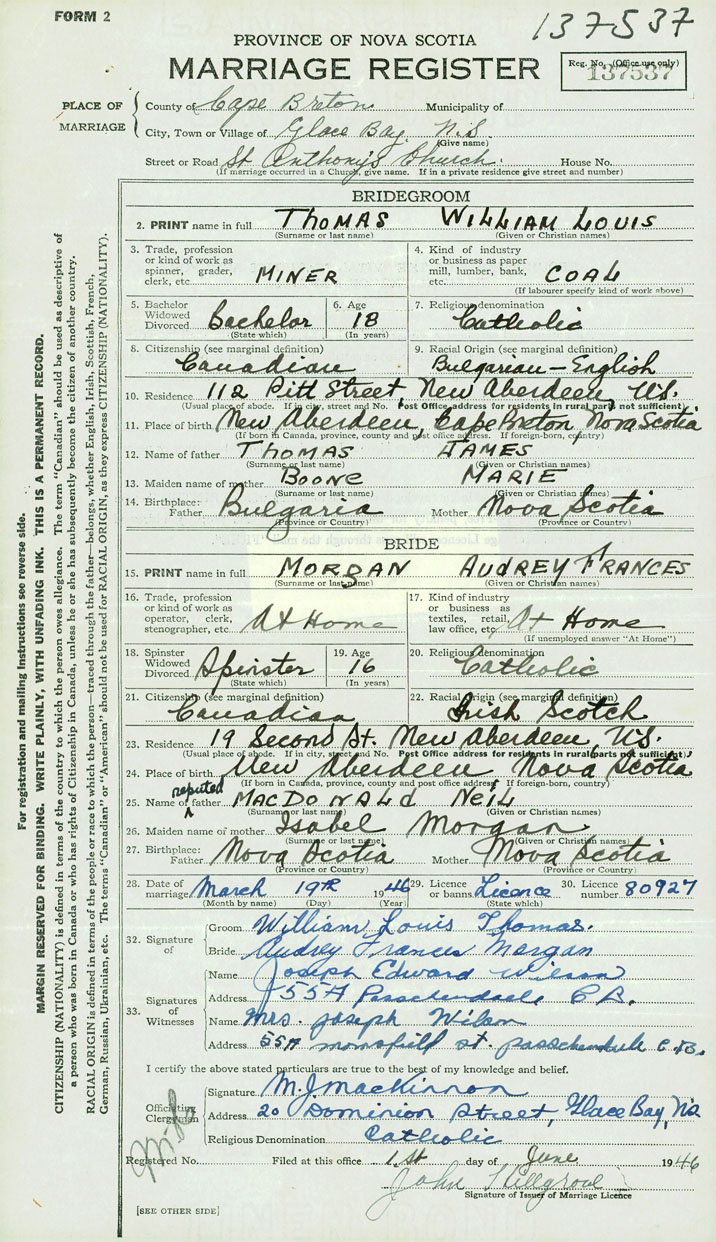 FORM 2
137537
PROVINCE OF NOVA SCOTIA
MARRIAGE REGISTER
Reg. No. (Office use only)
137537
PLACE OF MARRIAGE
County of Cape Breton Municipality of
City, Town or Village of Glace Bay, N.S.
(Give name)
Street or Road St Anthony's Church. House No.
(If marriage occurred in a Church, give name. If in a private residence give street and number)
BRIDEGROOM
2. PRINT name in full THOMAS WILLIAM LOUIS
(Surname or last name) (Given or Christian names)
3. Trade, profession or kind of work as spinner, grader, clerk, etc. MINER
4. Kind of industry or business as paper mill, lumber, bank, etc. COAL
(If labourer specify kind of work above)
5. Bachelor Widowed Divorced Bachelor
(State which)
6. Age 18
(In years)
7. Religious denomination Catholic
8. Citizenship (see marginal definition) Canadian
9. Racial Origin (see marginal definition) Bulgarian-English
10. Residence 112 Pitt Street, New Aberdeen, N.S.
(Usual place of abode. If in city, street and No. Post Office address for residents in rural parts not sufficient)
11. Place of birth New Aberdeen, Cape Breton Nova Scotia
(If born in Canada, province, county and post office address. If foreign-born, country)
12. Name of father THOMAS JAMES
(Surname or last name) (Given or Christian names)
13. Maiden name of mother BOONE MARIE
(Surname or last name) (Given or Christian names)
14. Birthplace: Father Bulgaria Mother Nova Scotia
(Province or Country) (Province or Country)
BRIDE
15. PRINT name in full MORGAN AUDREY FRANCES
(Surname or last name) (Given or Christian names)
16. Trade, profession or kind of work as operator, clerk, stenographer, etc. At Home
17. Kind of industry or business as textiles, retail, law office, etc. At Home
(If unemployed answer "At Home")
18. Spinster Widowed Divorced Spinster
(State which)
19. Age 16
(In years)
20. Religious denomination Catholic
21. Citizenship (see marginal definition) Canadian
22. Racial Origin (see marginal definition) Irish Scotch
23. Residence 19 Second St. New Aberdeen, N.S.
(Usual place of abode. If in city, street and No. Post Office address for residents in rural parts not sufficient)
24. Place of birth New Aberdeen Nova Scotia
(If born in Canada, province, county and post office address. If foreign-born, country)
25. Name of reputed father MACDONALD NEIL
(Surname or last name) (Given or Christian names)
26. Maiden name of mother Isabel Morgan
(Surname or last name) (Given or Christian names)
27. Birthplace: Father Nova Scotia Mother Nova Scotia
(Province or Country) (Province or Country)
28. Date of marriage March 19th 1946
(Month by name) (Day) (Year)
29. Licence or banns Licence
(State which)
30. Licence number 80927
32. Signature of
Groom William Louis Thomas.
Bride Audrey Frances Morgan
33. Signatures of Witnesses
Name Joseph Edward Wilson
Address 55A Passchendaele C.B.
Name Mrs. Joseph Wilson
Address 55A mansfield st. passchendaele C.B.
I certify the above stated particulars are true to the best of my knowledge and belief.
Officiating Clergyman
Signature M.J. MacKinnon
Address 20 Dominion Street, Glace Bay, N.S.
Religious Denomination Catholic
Registered No. Filed at this office 1st day of June 1946
John
Signature of Issuer of Marriage Licence
[SEE OTHER SIDE]
For registration and mailing instructions see reverse side.
MARGIN RESERVED FOR BINDING. WRITE PLAINLY, WITH UNFADING INK. THIS IS A PERMANENT RECORD.
CITIZENSHIP (NATIONALITY) is defined in terms of the country to which the person owes allegiance. The term "Canadian" should be used as descriptive of
a person who was born in Canada or who has rights of Citizenship in Canada, unless he or she has subsequently become the citizen of another country.
RACIAL ORIGIN is defined in terms of the people or race to which the person—traced through the father—belongs, whether English, Irish, Scottish, French,
German, Russian, Ukrainian, etc. The terms "Canadian" or "American" should not be used for RACIAL ORIGIN, as they express CITIZENSHIP (NATIONALITY).